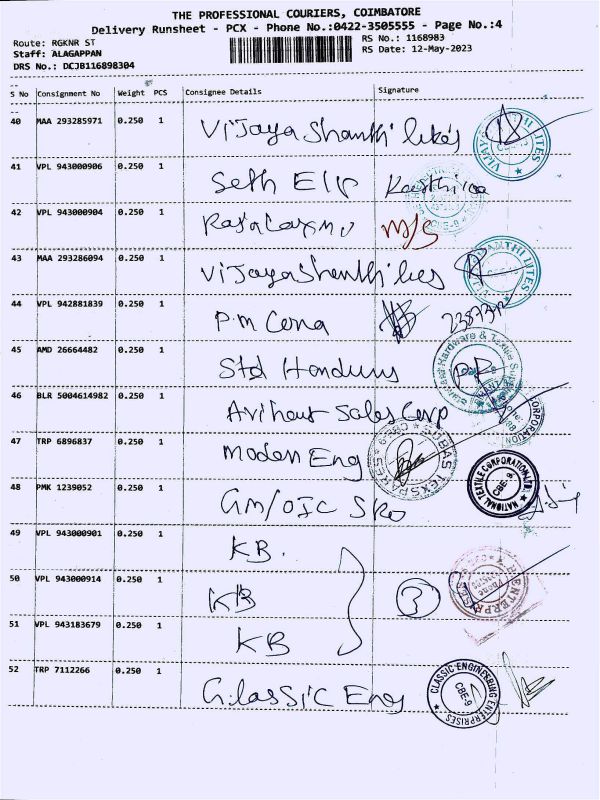 THE PROFESSIONAL COURIERS, COIMBATORE
Delivery Runsheet - PCX - Phone No.:0422-3505555 - Page No.:4
Route: RGKNR ST
RS No.: 1168983
Staff: ALAGAPPAN
RS Date: 12-May-2023
DRS No.: DCJB116898304
S No Consignment No Weight PCS Consignee Details Signature
40 MAA 293285971 0.250 1 Vijaya Shanthi
41 VPL 943000906 0.250 1 Seth
42 VPL 943000904 0.250 1 M/S
43 MAA 293286094 0.250 1 Vijaya Shanthi
44 VPL 942881839 0.250 1 P.M Cena
45 AMD 26664482 0.250 1 Std
46 BLR 5004614982 0.250 1 Arihant Sales Corp
CORPORATION
47 TRP 6896837 0.250 1 Modern Eng
SUBAS TEXSPARES CBE-9
48 PMK 1239052 0.250 1 GM/OIC SRO
NATIONAL TEXTILE CORPORATION LTD. CBE-9.
49 VPL 943000901 0.250 1 KB.
50 VPL 943000914 0.250 1 KB 3
51 VPL 943183679 0.250 1 KB
52 TRP 7112266 0.250 1 Classic Eng
CLASSIC ENGINEERING ENTERPRISES CBE-9